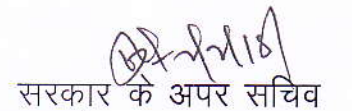 सरकार के अपर सचिव